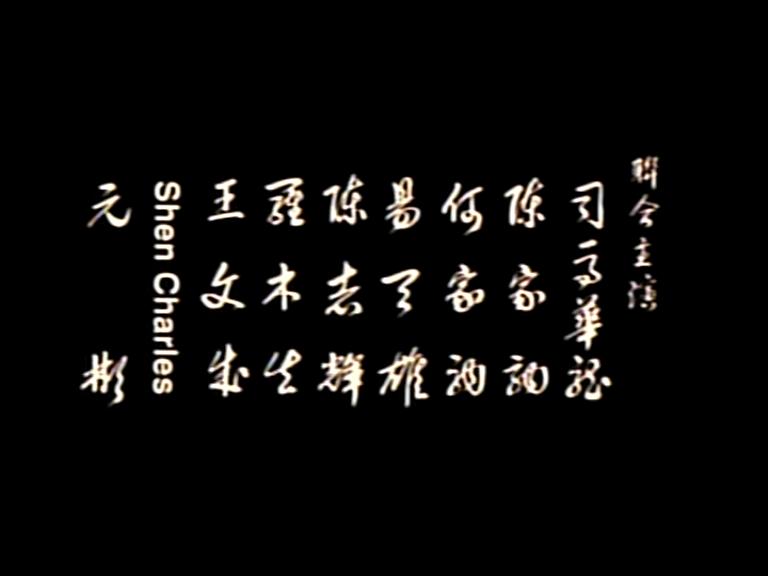 聯合主演
司马華龍
陳家
何家
易天雄
陳志輝
羅木生
王文成
Shen Charles
元彬